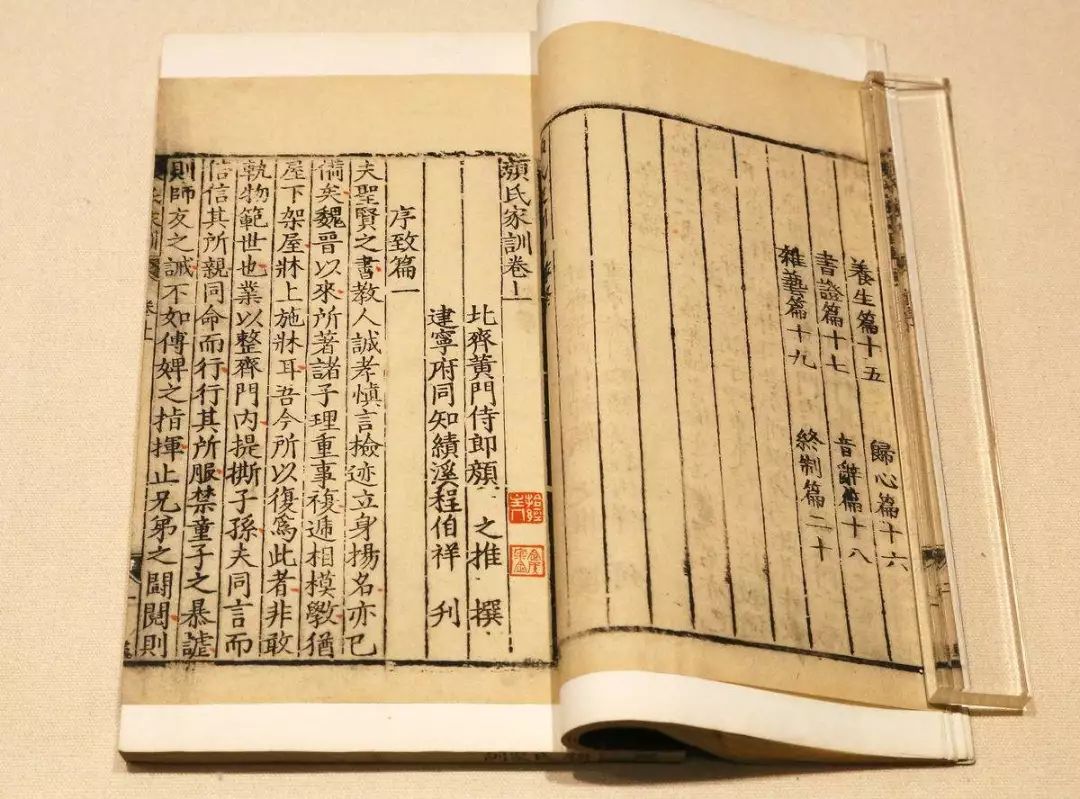 養生篇十五 歸心篇十六
書證篇十七 音辭篇十八
雜藝篇十九 終制篇二十
顏氏家訓卷上
北齊黃門侍郎顏 之推 撰
建寧府同知績溪程伯祥 刊
序致篇一
夫聖賢之書教人誠孝愼言檢迹立身揚名亦已
備矣魏晉以來所著諸子理重事複遞相模斆猶
屋下架屋牀上施牀耳吾今所以復爲此者非敢
軌物範世也業以整齊門內提撕子孫夫同言而
信信其所親同命而行行其所服禁童子之暴謔
則師友之誡不如傅婢之指揮止兄弟之鬪鬩則